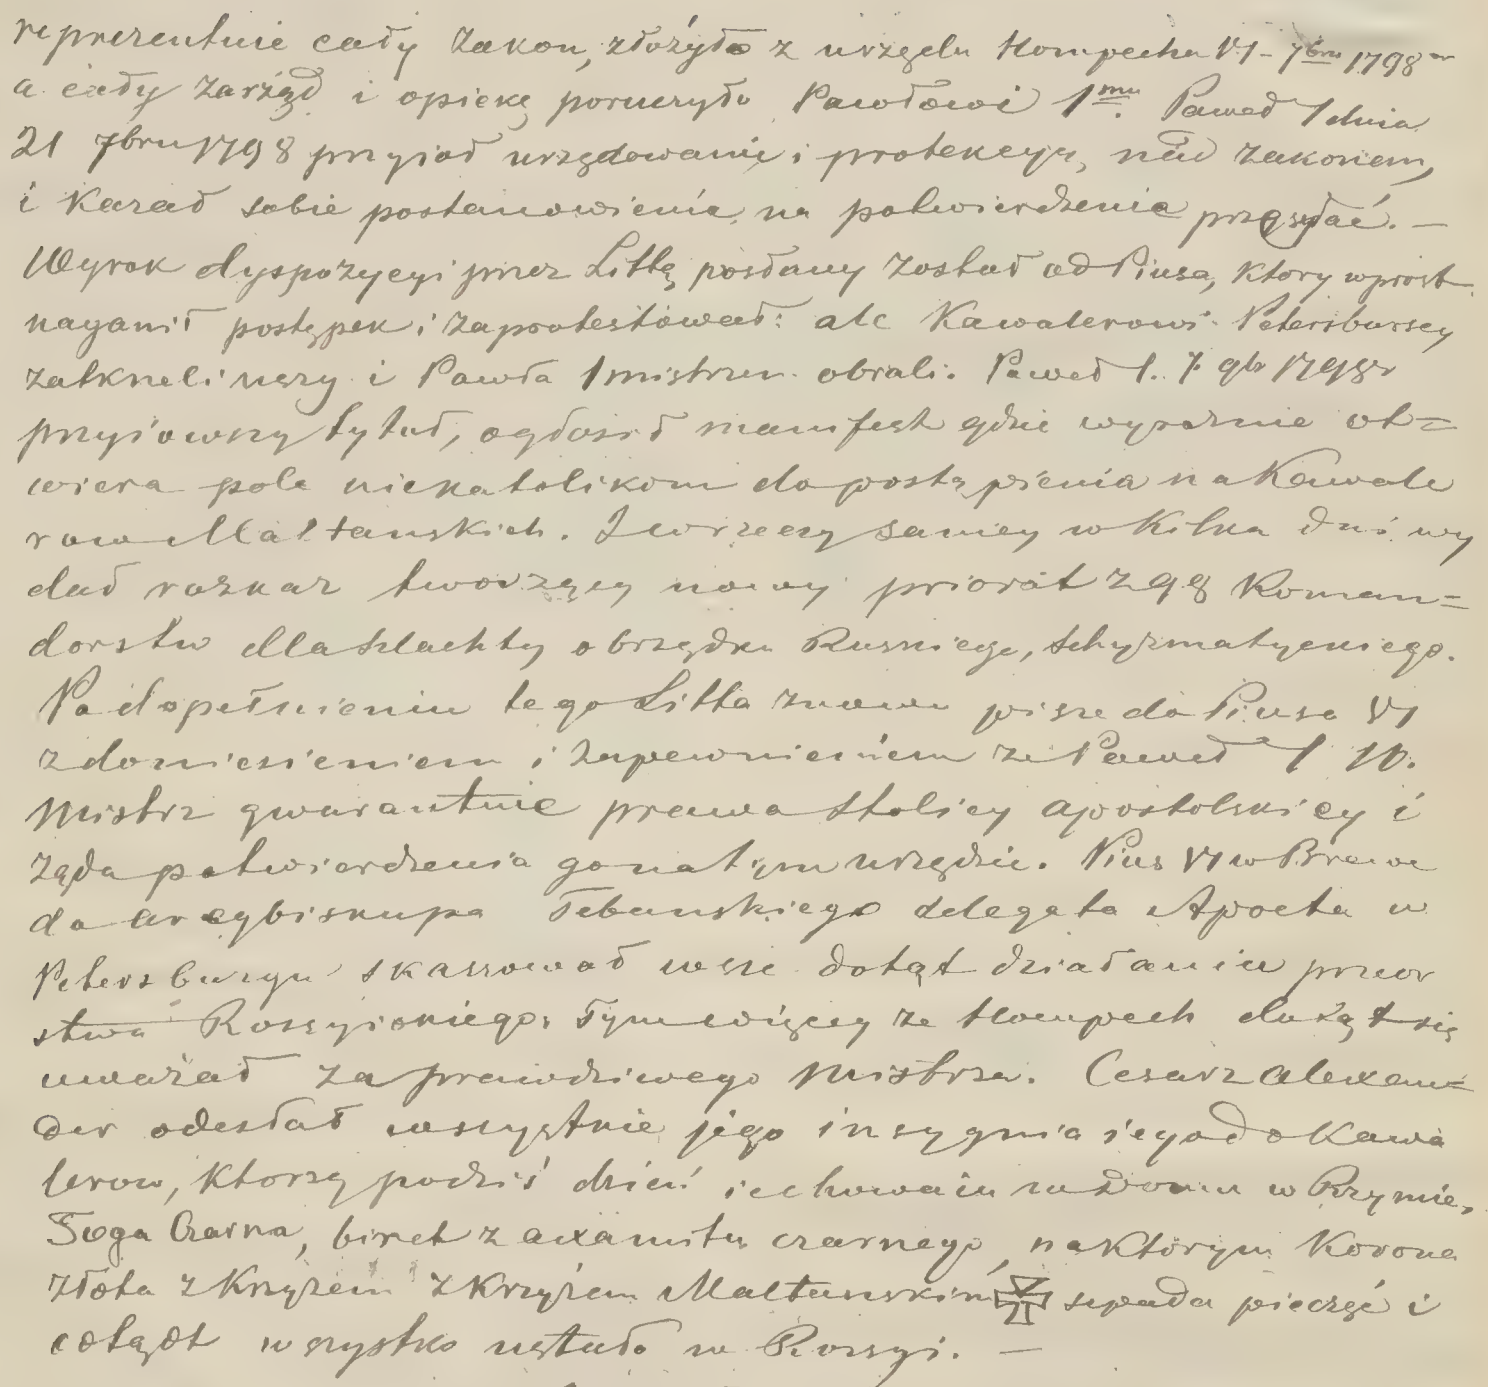 reprezentuie cały Zakon, złożyło z urzędu Hompecha VI-7bru 1798
a cały Zarząd i opiekę poruczyło Pawłowi 1mu. Paweł I dnia
21 7bru 1798 przyjoł urzędowanie i protekcyą, nad Zakonem,
i Kazał sobie postanowienia na potwierdzenie przysyłać. —
Wyrok dyspozycyi przez Littę posłany został od Piusa, Ktory wprost
naganił postępek i Zaprotestował: ale Kawalerowi Petersburscy
Zatkneli uszy i Pawła I mistrzem obrali. Paweł I. 7. 9br 1798r
przyiowszy tytuł, ogłosił manifest gdzie wyraznie ot=
wiera pole niekatolikom do postąpienia na Kawale
row Maltanskich. I w rzeczy samey w Kilka dni wy
dał rozkaz tworzący nowy priorat z 98 Koman=
dorstw dla Szlachty obrządku Ruskiego, Schyzmatyckiego.
Po dopełnieniu tego Litta znowu pisze do Piusa VI
z doniesieniem i Zapewnieniem ze Paweł I W.
Mistrz gwarantuie prawa Stolicy apostolskiey i
Ząda potwierdzenia go na tym urzędzie. Pius VI w Brewe
do arcybiskupa Tebanskiego delegata Aposta w
Petersburgu skassował wsze dotąt działania przeor
stwa Rossyiskiego. Tym więcey ze Hompech dotąt się
uwazał Za prawdziwego Mistrza. Cesarz Alexan=
der odesłał wszystkie jego insygnia iego do Kawa
lerow, Ktorzy podziś dzień ie chowaiu w Domu w Rzymie,
Toga Czarna, biret z axamitu czarnego, na Ktorym Korona
Złota z Krzyżem z Krzyżem Maltanskim szpada pieczęć i
odtąt wszystko ustało w Rossyi. —